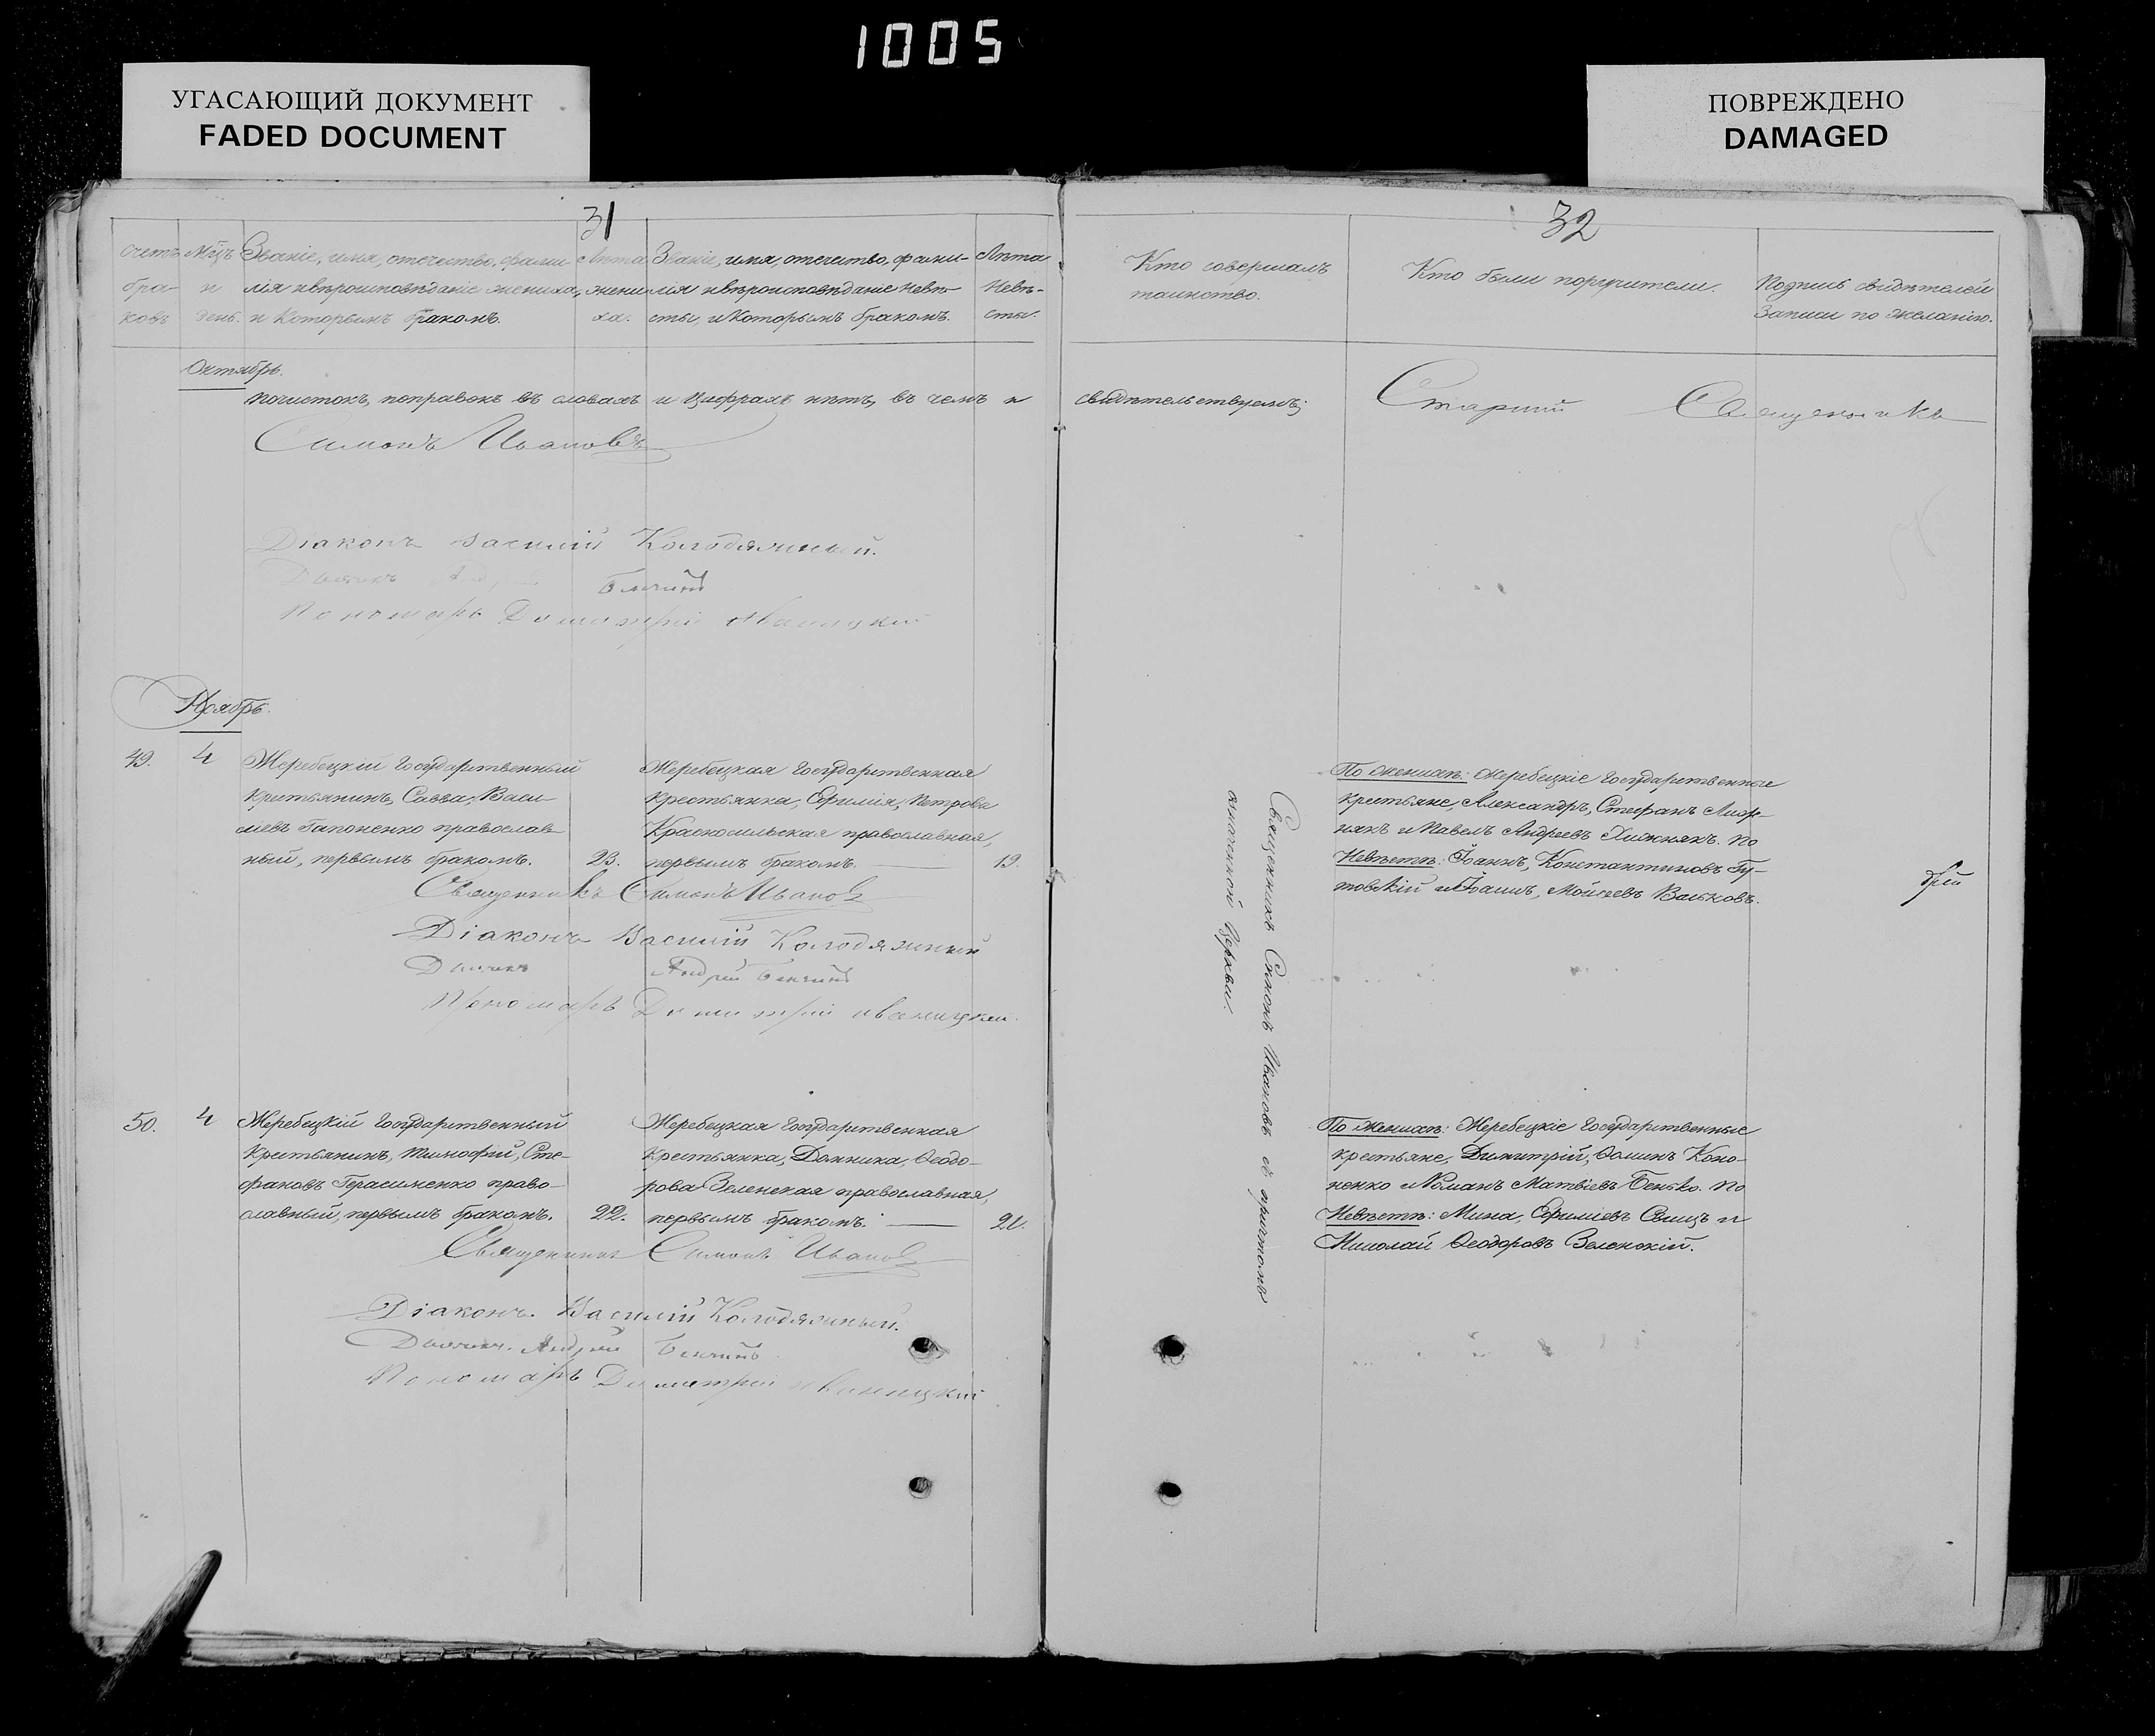 1005
УГАСАЮЩИЙ ДОКУМЕНТ
FADED DOCUMENT
ПОВРЕЖДЕНО
DAMAGED
31
счетъ бра- ковъ
Мѣцъ и день.
Званіе, имя, отечество, фами-
лія и вѣроисповѣданіе жениха,
и которымъ бракомъ.
Лѣта жени ха.
Званіе, имя, отечество, фами-
лія и вѣроисповѣданіе невѣ-
сты, и которымъ бракомъ.
Лѣта Невѣ- сты.
Октябрь.
почистокъ, поправокъ въ словахъ и цифрахъ нѣтъ, въ чемъ и
Симонъ Ивановъ
Діаконъ Василій Колодяжный.
Пономарь Димитрій
Ноябрь.
49. 4
Жеребецкій государственный
крестьянинъ, Савва, Васи-
ліевъ Гапоненко православ-
ный, первымъ бракомъ. 23.
Жеребецкая государственная
крестьянка, Евфимія, Петрова
Красносильская православная,
первымъ бракомъ. 19.
Священникъ Симонъ Ивановъ
Діаконъ Василій Колодяжный
Андрей
Пономарь Димитрій Иваницкій
50. 4
Жеребецкій государственный
крестьянинъ, Тимофій, Сте-
фановъ Герасименко право-
славный, первымъ бракомъ. 22.
Жеребецкая государственная
крестьянка, Домника, Ѳеодо-
рова Зеленская православная,
первымъ бракомъ. 21.
Священникъ Симонъ Ивановъ
Діаконъ. Василій Колодяжный.
Андрей
Пономарь Димитрій Иваницкій
32
Кто совершалъ
таинство.
Кто были поручители.
Подпись свидѣтелей
записи по желанію.
свидѣтельствуемъ;
Старшій Священникъ
Священникъ Симонъ Ивановъ съ причтомъ
означенной Церкви.
По женихѣ: Жеребецкіе государственные
крестьяне, Александръ, Стефанъ
и Павелъ Андреевъ Хижнякъ. По
Невѣстѣ: Іоаннъ, Константиновъ Гу-
товскій и Іоаннъ, Мойсеевъ Вальковъ.
По женихѣ: Жеребецкіе государственные
крестьяне, Димитрій, Ѳоминъ Коно-
ненко и Романъ Матвіевъ Бенько. По
Невѣстѣ: Мина, Ефиміевъ и
Николай Ѳеодоровъ Зеленскій.